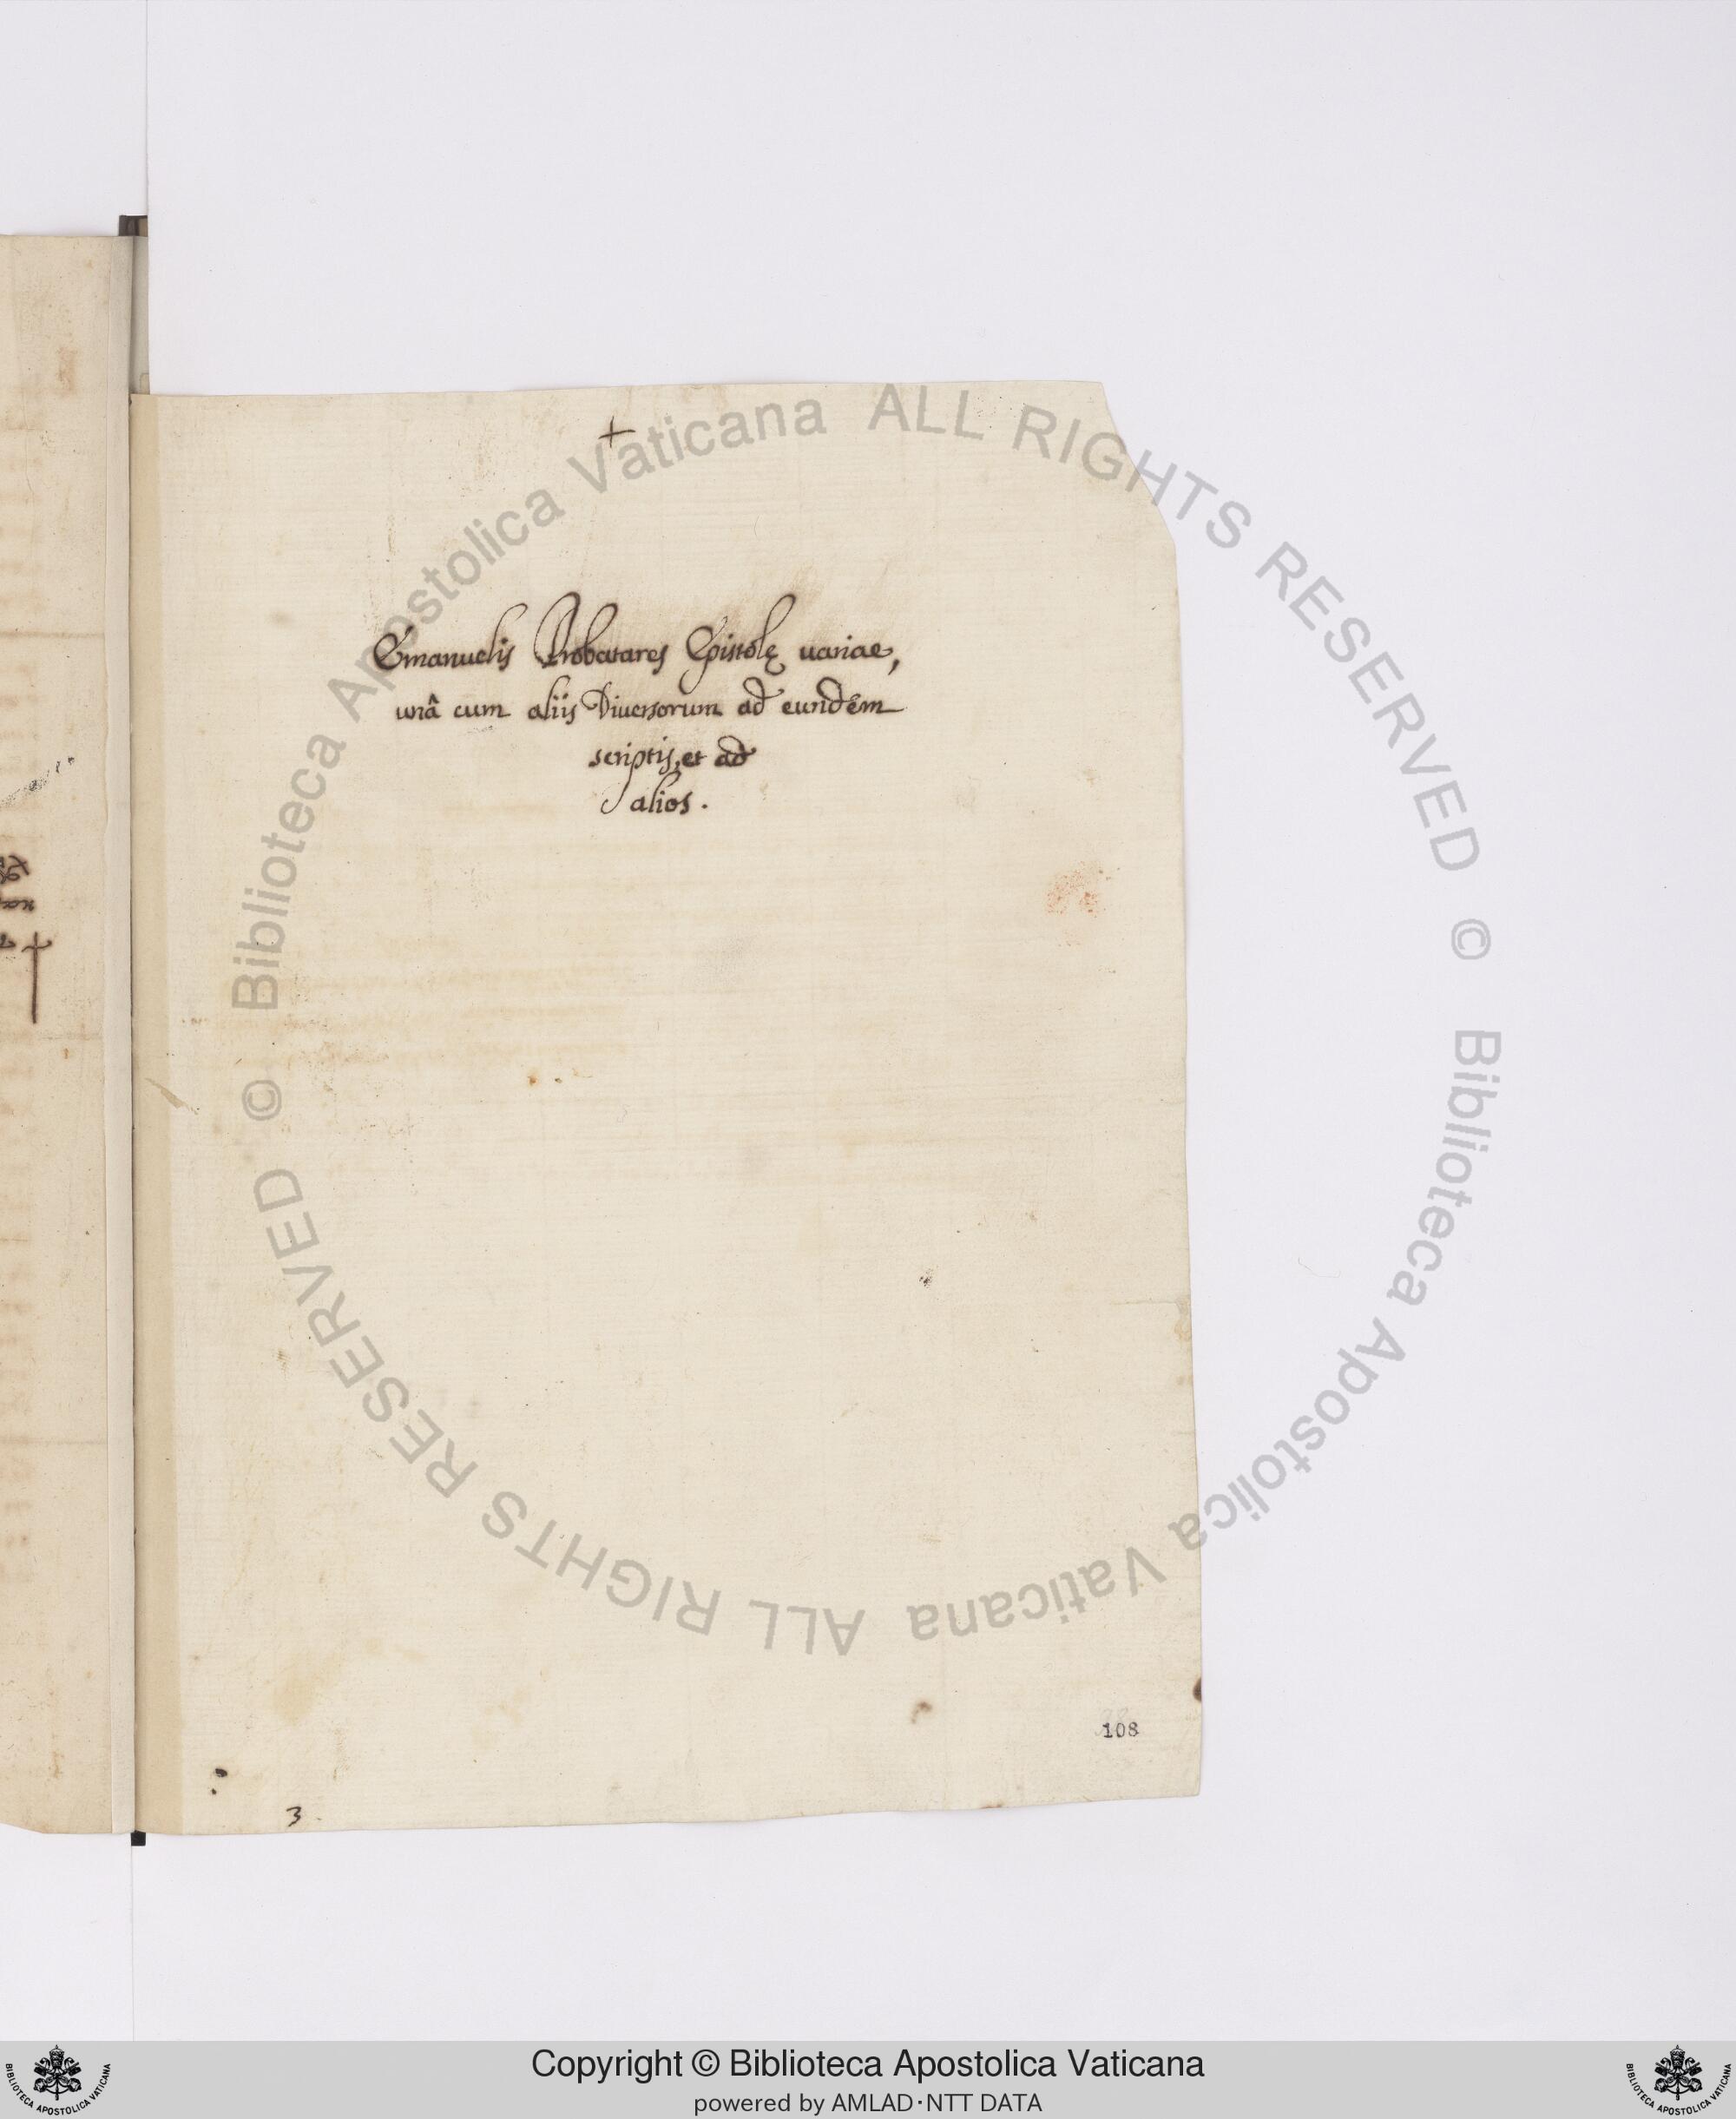 +
Emanuelis Probatares Epistolę uariae,
unâ cum aliis Diuersorum ad eundem
scriptis, et ad
alios.
108
3
© Biblioteca Apostolica Vaticana ALL RIGHTS RESERVED
© Biblioteca Apostolica Vaticana ALL RIGHTS RESERVED
Copyright © Biblioteca Apostolica Vaticana
powered by AMLAD·NTT DATA
BIBLIOTECA APOSTOLICA VATICANA
BIBLIOTECA APOSTOLICA VATICANA